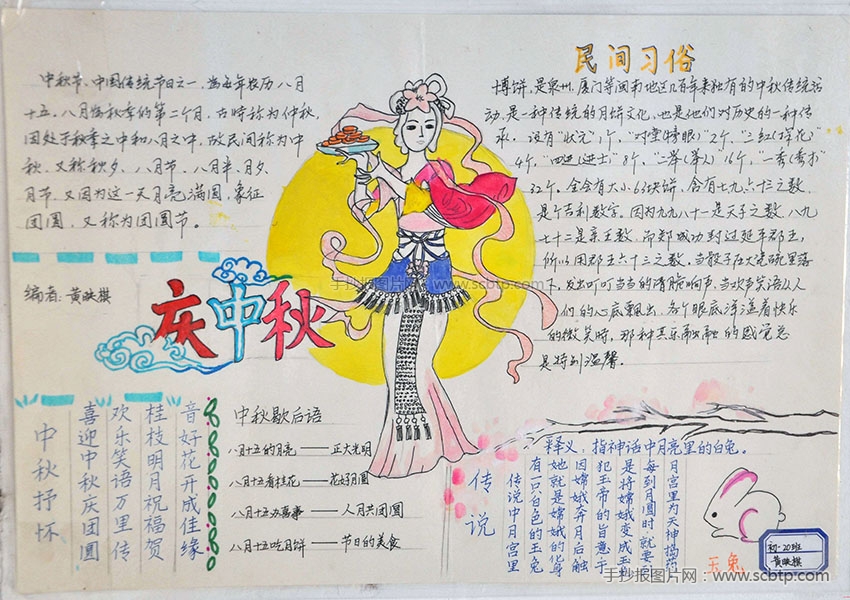 中秋节、中国传统节日之一,为每年农历八月
十五。八月为秋季的第二个月,古时称为仲秋,
因处于秋季之中和八月之中,故民间称为中
秋,又称秋夕、八月节、八月半、月夕、
月节,又因为这一天月亮满圆,象征
团圆,又称为团圆节。
编者:黄映棋
庆中秋
民间习俗
博饼,是泉州、厦门等闽南地区几百年来独有的中秋传统活
动,是一种传统的月饼文化,也是他们对历史的一种传
承。设有“状元”1个,“对堂(榜眼)”2个,“三红(探花)”
4个,“四进(进士)”8个,“二举(举人)”16个,“一秀(秀才)”
32个,全会有大小63块饼,含有七九六十三之数,
是个吉利数字。因为九九八十一是天子之数,八九
七十二是亲王数,而郑成功封过延平郡王,
所以用郡王六十三之数,当骰子在大瓷碗里落
下,发出叮叮当当的清脆响声,当欢声笑语从人
们的心底飘出,各个眼底洋溢着快乐
的微笑时,那种其乐融融的感觉总
是特别温馨。
手抄报图片网:www.scbtp.com
中秋抒怀
喜迎中秋庆团圆
欢乐笑语万里传
桂枝明月祝福贺
音好花开成佳缘
中秋歇后语
八月十五的月亮——正大光明
八月十五看桂花——花好月圆
八月十五办喜事——人月共团圆
八月十五吃月饼——节日的美食
释义,指神话中月亮里的白兔。
传说
传说中月宫里
有一只白色的玉兔
她就是嫦娥的化身
因嫦娥奔月后触
犯玉帝的旨意于
是将嫦娥变成玉兔
每到月圆时就要
月宫里为天神捣药
玉兔
初一20班
黄映棋
手抄报图片网:www.scbtp.com